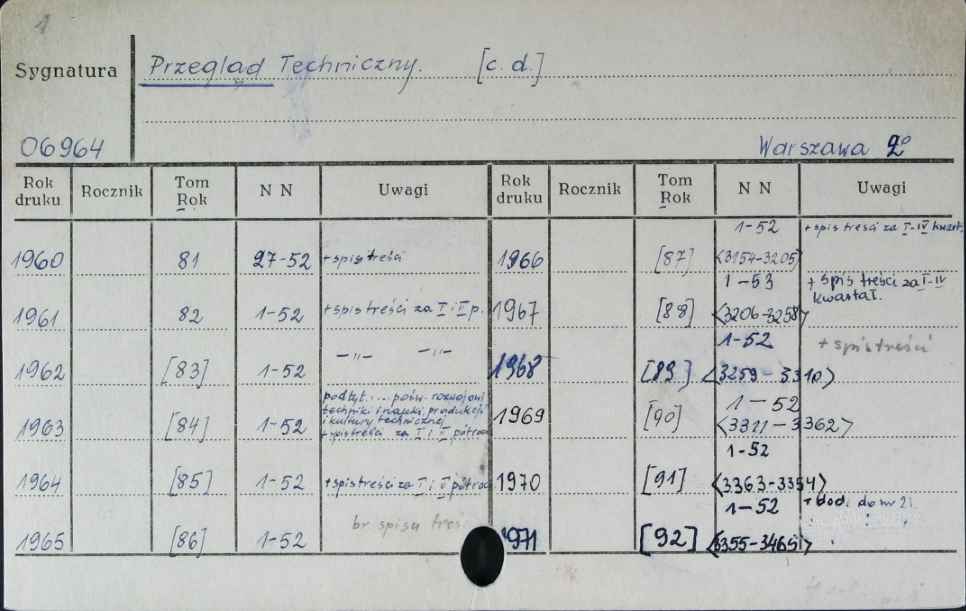 1
Sygnatura
Przegląd Techniczny. [c. d.]
06964
Warszawa 2°
Rok druku Rocznik Tom Rok N N Uwagi Rok druku Rocznik Tom Rok N N Uwagi
1960 81 27-52 + spis treści
1966 [87] 1-52 <3154-3205> + spis treści za I-IV kwart.
1961 82 1-52 + spis treści za I i II p.
1967 [88] 1-53 <3206-3258> + spis treści za I-IV kwartał.
1962 [83] 1-52 -"- -"-
1968 [89] 1-52 <3259-3310> + spis treści
1963 [84] 1-52 podtyt. ... pośw. rozwojowi
techniki i nauki, produkcji
i kultury technicznej
+ spis treści za I i II półrocze
1969 [90] 1-52 <3311-3362>
1964 [85] 1-52 + spis treści za I i II półrocze
1970 [91] 1-52 <3363-3354>
1965 [86] 1-52 br spisu treści
1971 [92] 1-52 <3355-3465> + dod. do nr 21